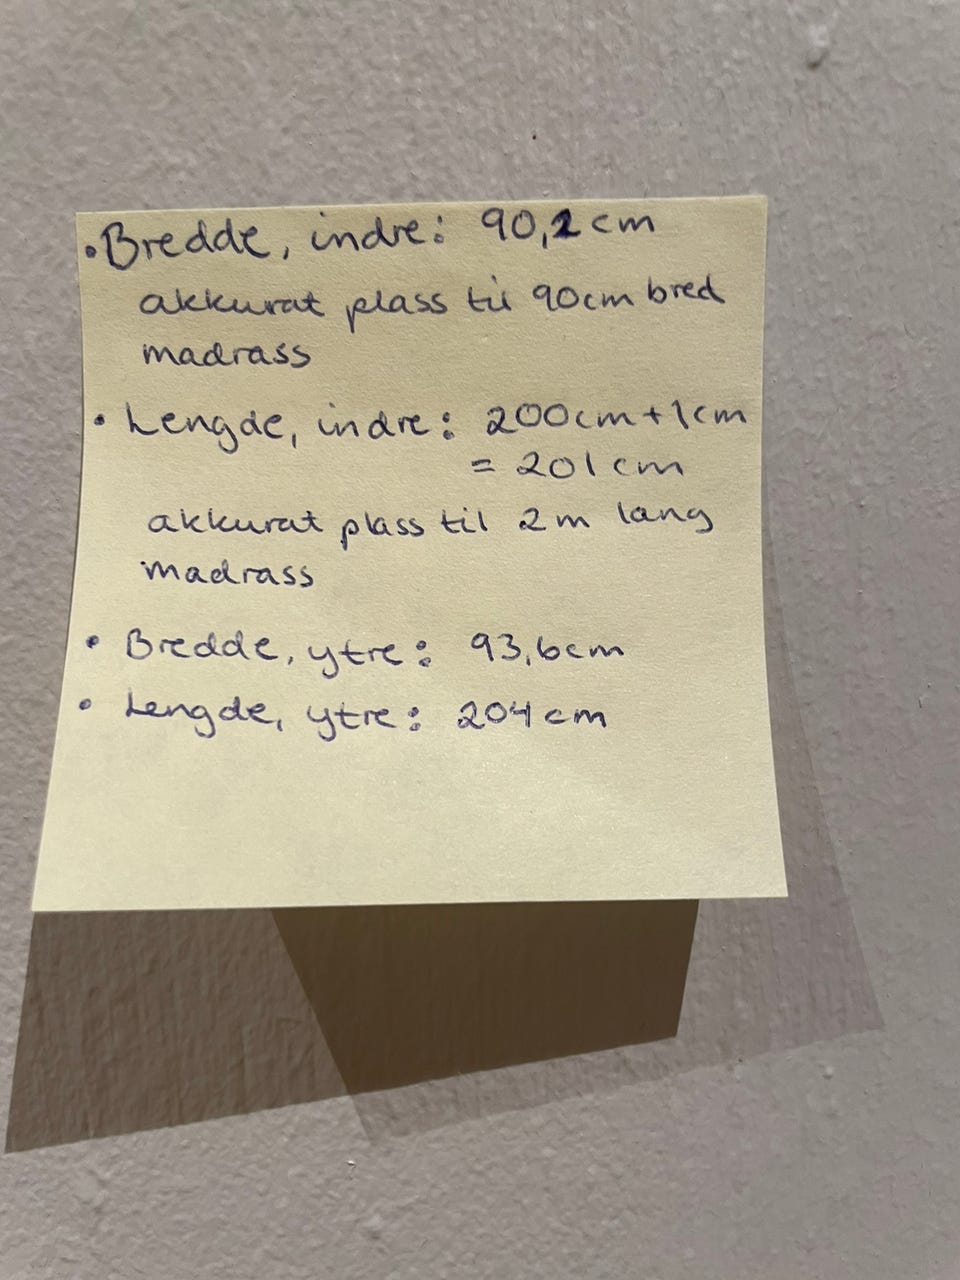 • Bredde, indre: 90,2 cm
akkurat plass til 90cm bred
madrass
• Lengde, indre: 200cm+1cm
= 201 cm
akkurat plass til 2m lang
madrass
• Bredde, ytre: 93,6cm
• Lengde, ytre: 204 cm